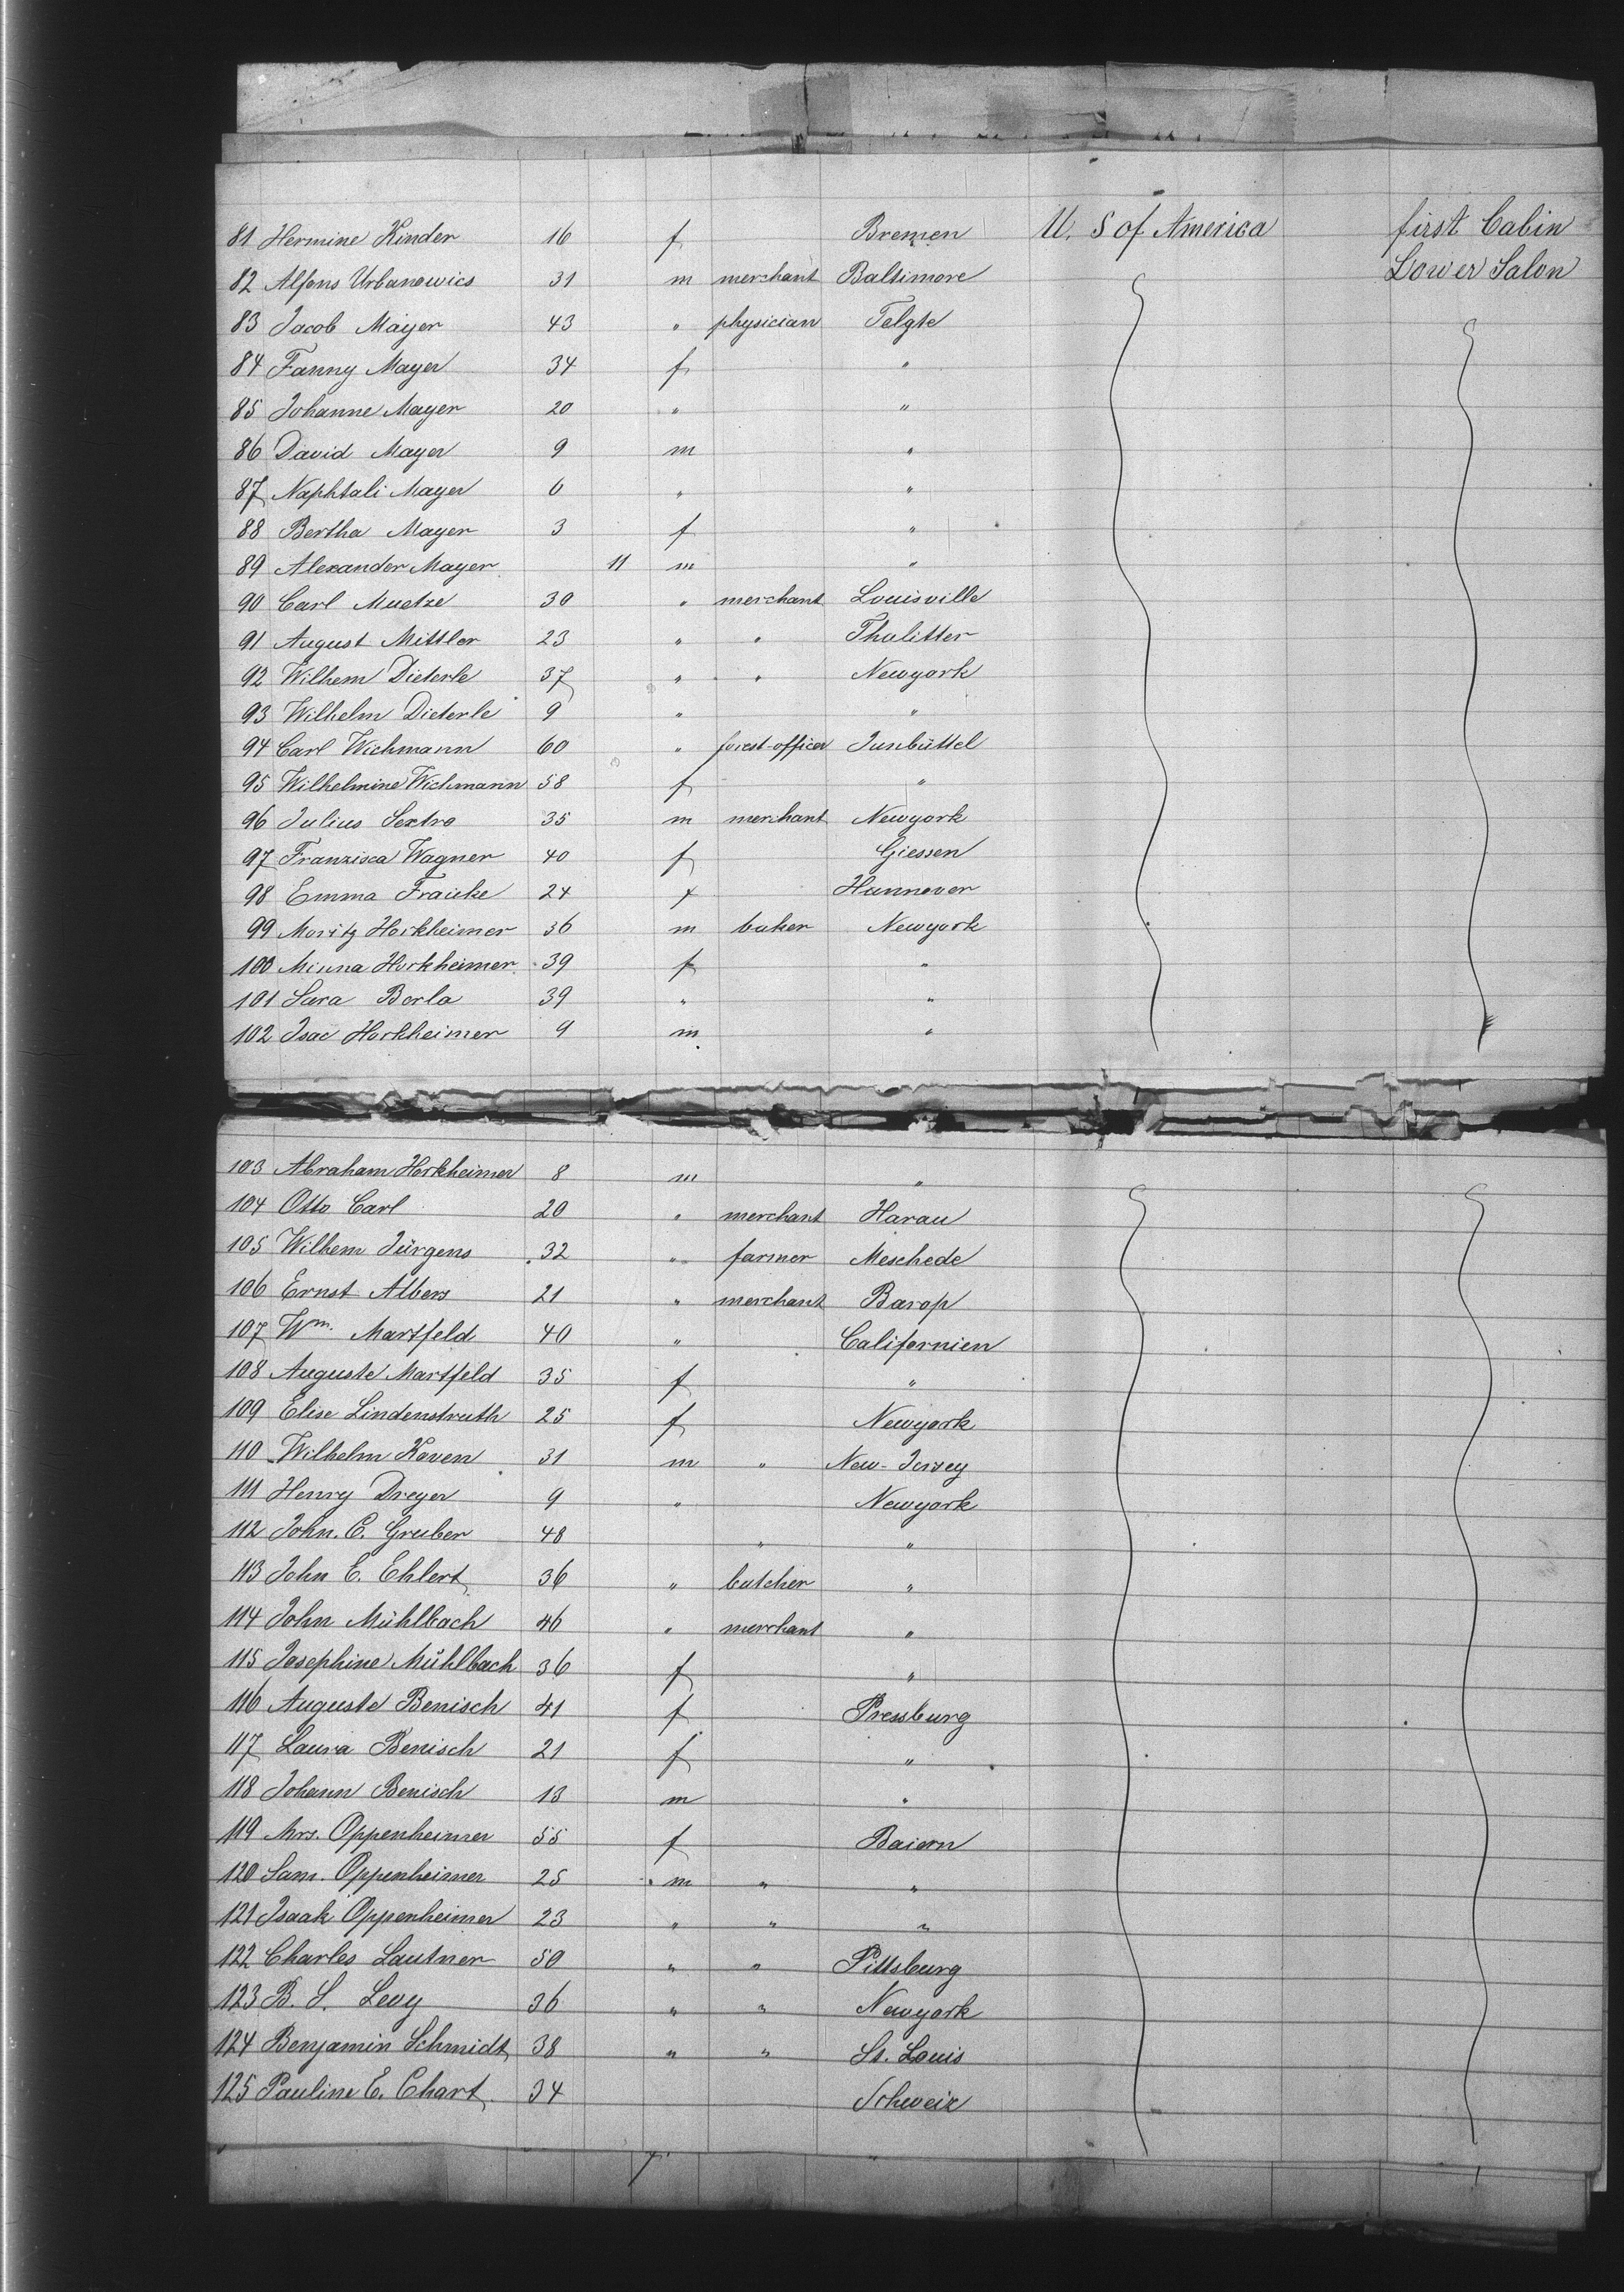 81 Hermine Kinder 16 f Bremen U. S of America first Cabin
82 Alfons Urbanowics 31 m merchant Baltimore Lower Salon
83 Jacob Mayer 43 " physician Telgte
84 Fanny Mayer 34 f "
85 Johanne Mayer 20 " "
86 David Mayer 9 m "
87 Naphtali Mayer 6 " "
88 Bertha Mayer 3 f "
89 Alexander Mayer 11 m "
90 Carl Muetze 30 " merchant Louisville
91 August Mittler 23 " " Thalitter
92 Wilhem Dieterle 37 " " Newyork
93 Wilhelm Dieterle 9 " "
94 Carl Wichmann 60 " forest-officer Isenbüttel
95 Wilhelmine Wichmann 58 f "
96 Julius Sextro 35 m merchant Newyork
97 Franzisca Wagner 40 f Giessen
98 Emma Francke 24 f Hannover
99 Moritz Horkheimer 36 m baker Newyork
100 Minna Horkheimer 39 f "
101 Sara Borla 39 " "
102 Isac Horkheimer 9 m "
103 Abraham Horkheimer 8 m "
104 Otto Carl 20 " merchant Harau
105 Wilhem Jürgens 32 " farmer Meschede
106 Ernst Albers 21 " merchant Barop
107 Wm. Martfeld 40 " Californien
108 Auguste Martfeld 35 f "
109 Elise Lindenstruth 25 f Newyork
110 Wilhelm Kaven 31 m " New-Jersey
111 Henry Dreyer 9 " Newyork
112 John. C. Gruber 48 " "
113 John E. Ehlert 36 " butcher "
114 John Mühlbach 46 " merchant "
115 Josephine Mühlbach 36 f "
116 Auguste Benisch 41 f Pressburg
117 Laura Benisch 21 f "
118 Johann Benisch 13 m "
119 Mrs. Oppenheimer 55 f Baiern
120 Sam. Oppenheimer 25 m " "
121 Isaak Oppenheimer 23 " " "
122 Charles Lautner 50 " " Pittsburg
123 B. S. Levy 36 " " Newyork
124 Benjamin Schmidt 38 " " St. Louis
125 Pauline E. Chart 34 Schweiz